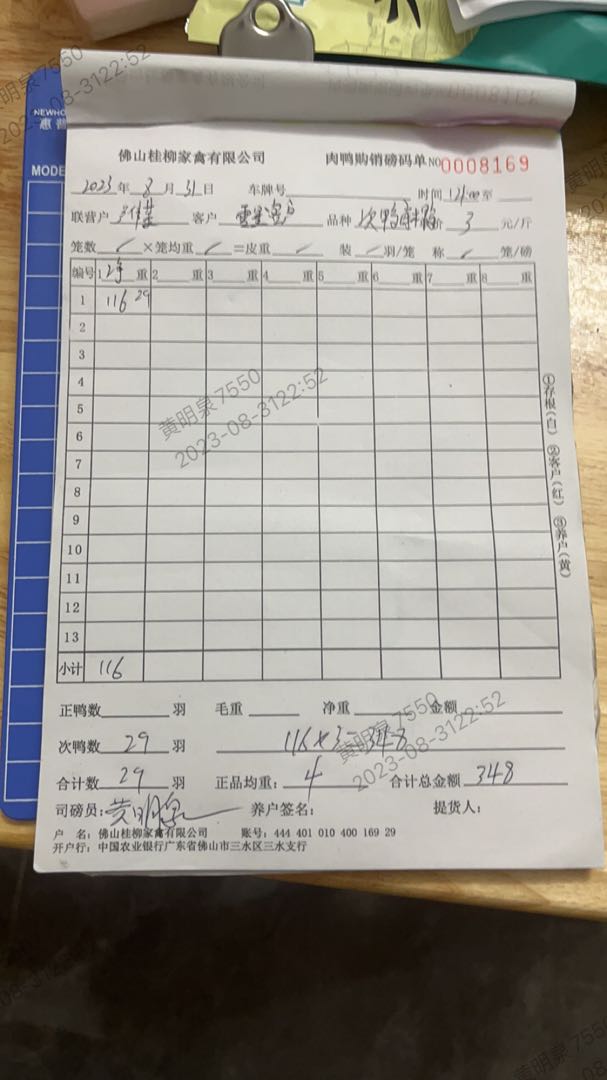 NEWHO
惠普
MODE
佛山桂柳家禽有限公司 肉鸭购销磅码单 NO 0008169
2023年 8月 31日 车牌号 时间 至
联营户 客户 品种 价 3 元/斤
笼数 ×笼均重 =皮重 装 羽/笼 称 笼/磅
编号 1 净 重 2 重 3 重 4 重 5 重 6 重 7 重 8 重
1 116 29
2
3
4
5
6
7
8
9
10
11
12
13
小计 116
正鸭数 羽 毛重 净重 金额
次鸭数 29 羽 116×3=348
合计数 29 羽 正品均重: 4 合计总金额 348
司磅员: 黄明泉 养户签名: 提货人:
户 名: 佛山桂柳家禽有限公司 账号: 444 401 010 400 169 29
开户行: 中国农业银行广东省佛山市三水区三水支行
①存根(白) ②客户(红) ③养户(黄)
黄明泉 7550
2023-08-3122:52